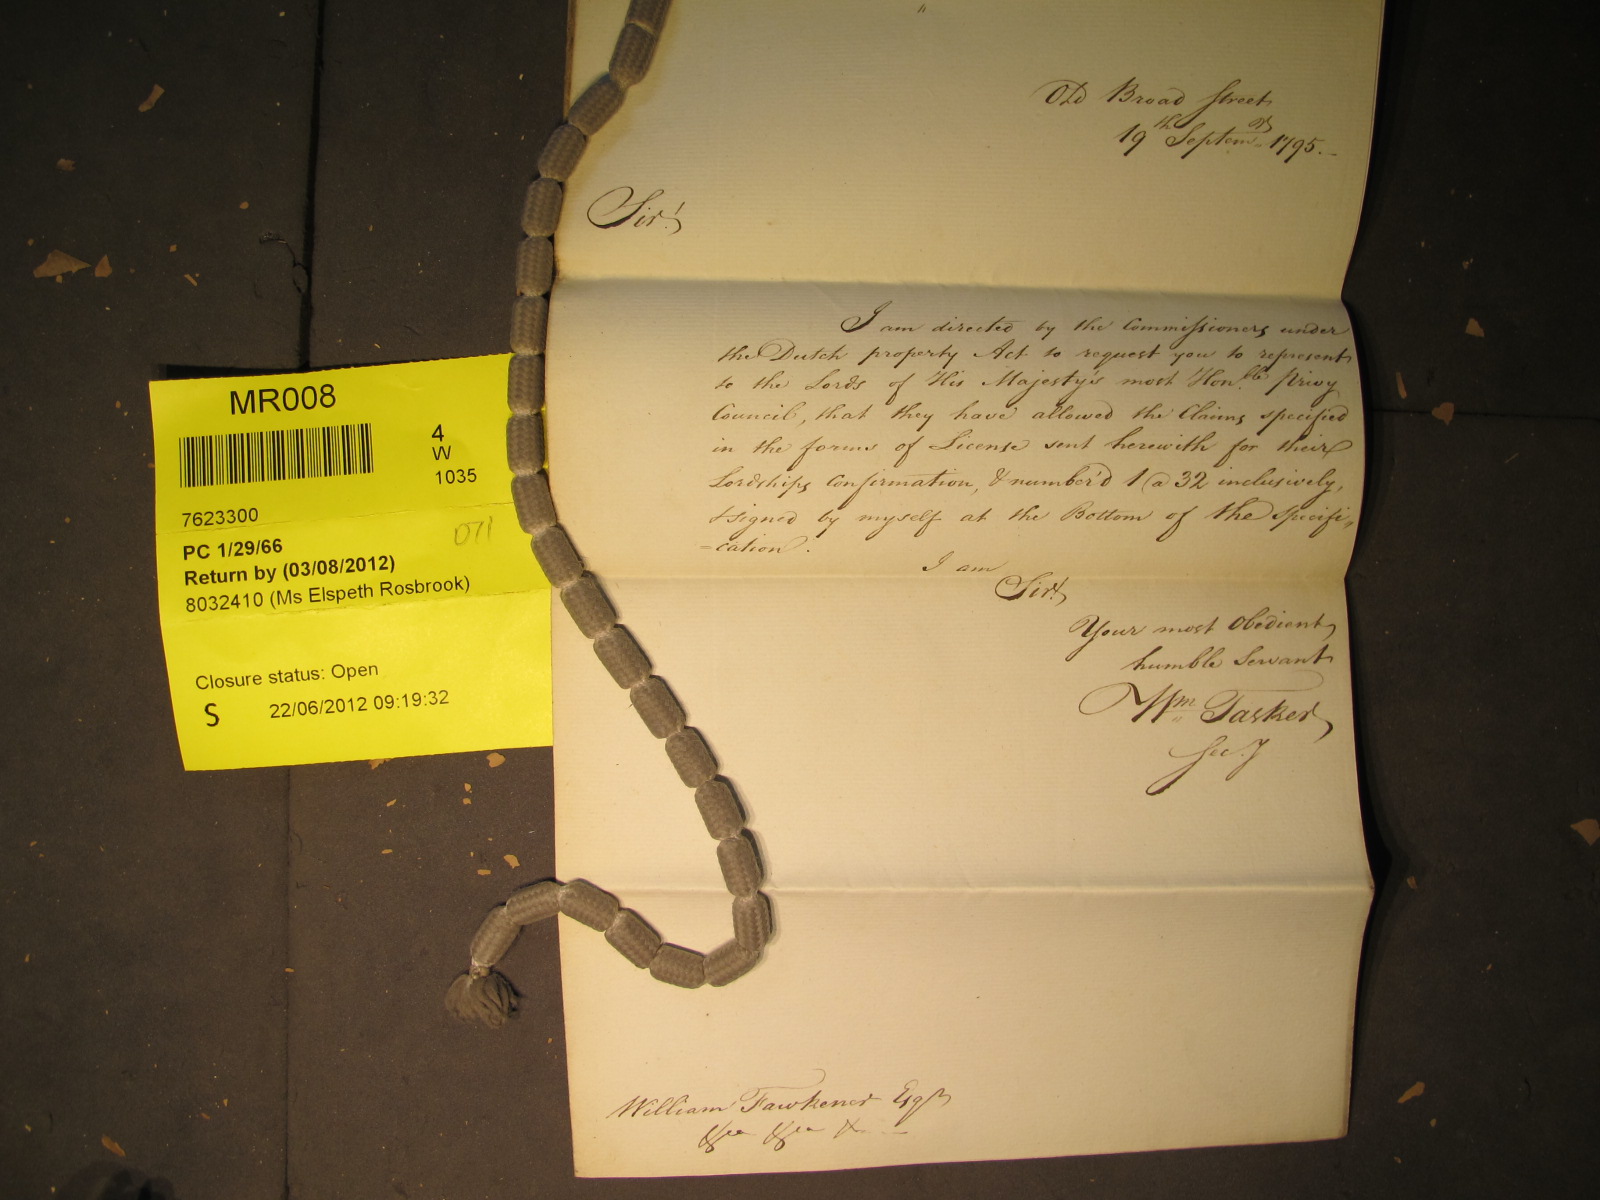 Old Broad Street
19th Septemr 1795.
Sir!
I am directed by the Commissioners under
the Dutch property Act to request you to represent
to the Lords of His Majesty's most Honble Privy
Council, that they have allowed the Claims specified
in the forms of License sent herewith for their
Lordships Confirmation, & number'd 1 @ 32 inclusively,
& signed by myself at the Bottom of the specifi-
=cation.
I am
Sir!
Your most Obedient
humble Servant
Wm Tasker
Secy
William Fawkener Esqr
&ca &ca &c
MR008
4
W
1035
7623300
071
PC 1/29/66
Return by (03/08/2012)
8032410 (Ms Elspeth Rosbrook)
Closure status: Open
S 22/06/2012 09:19:32